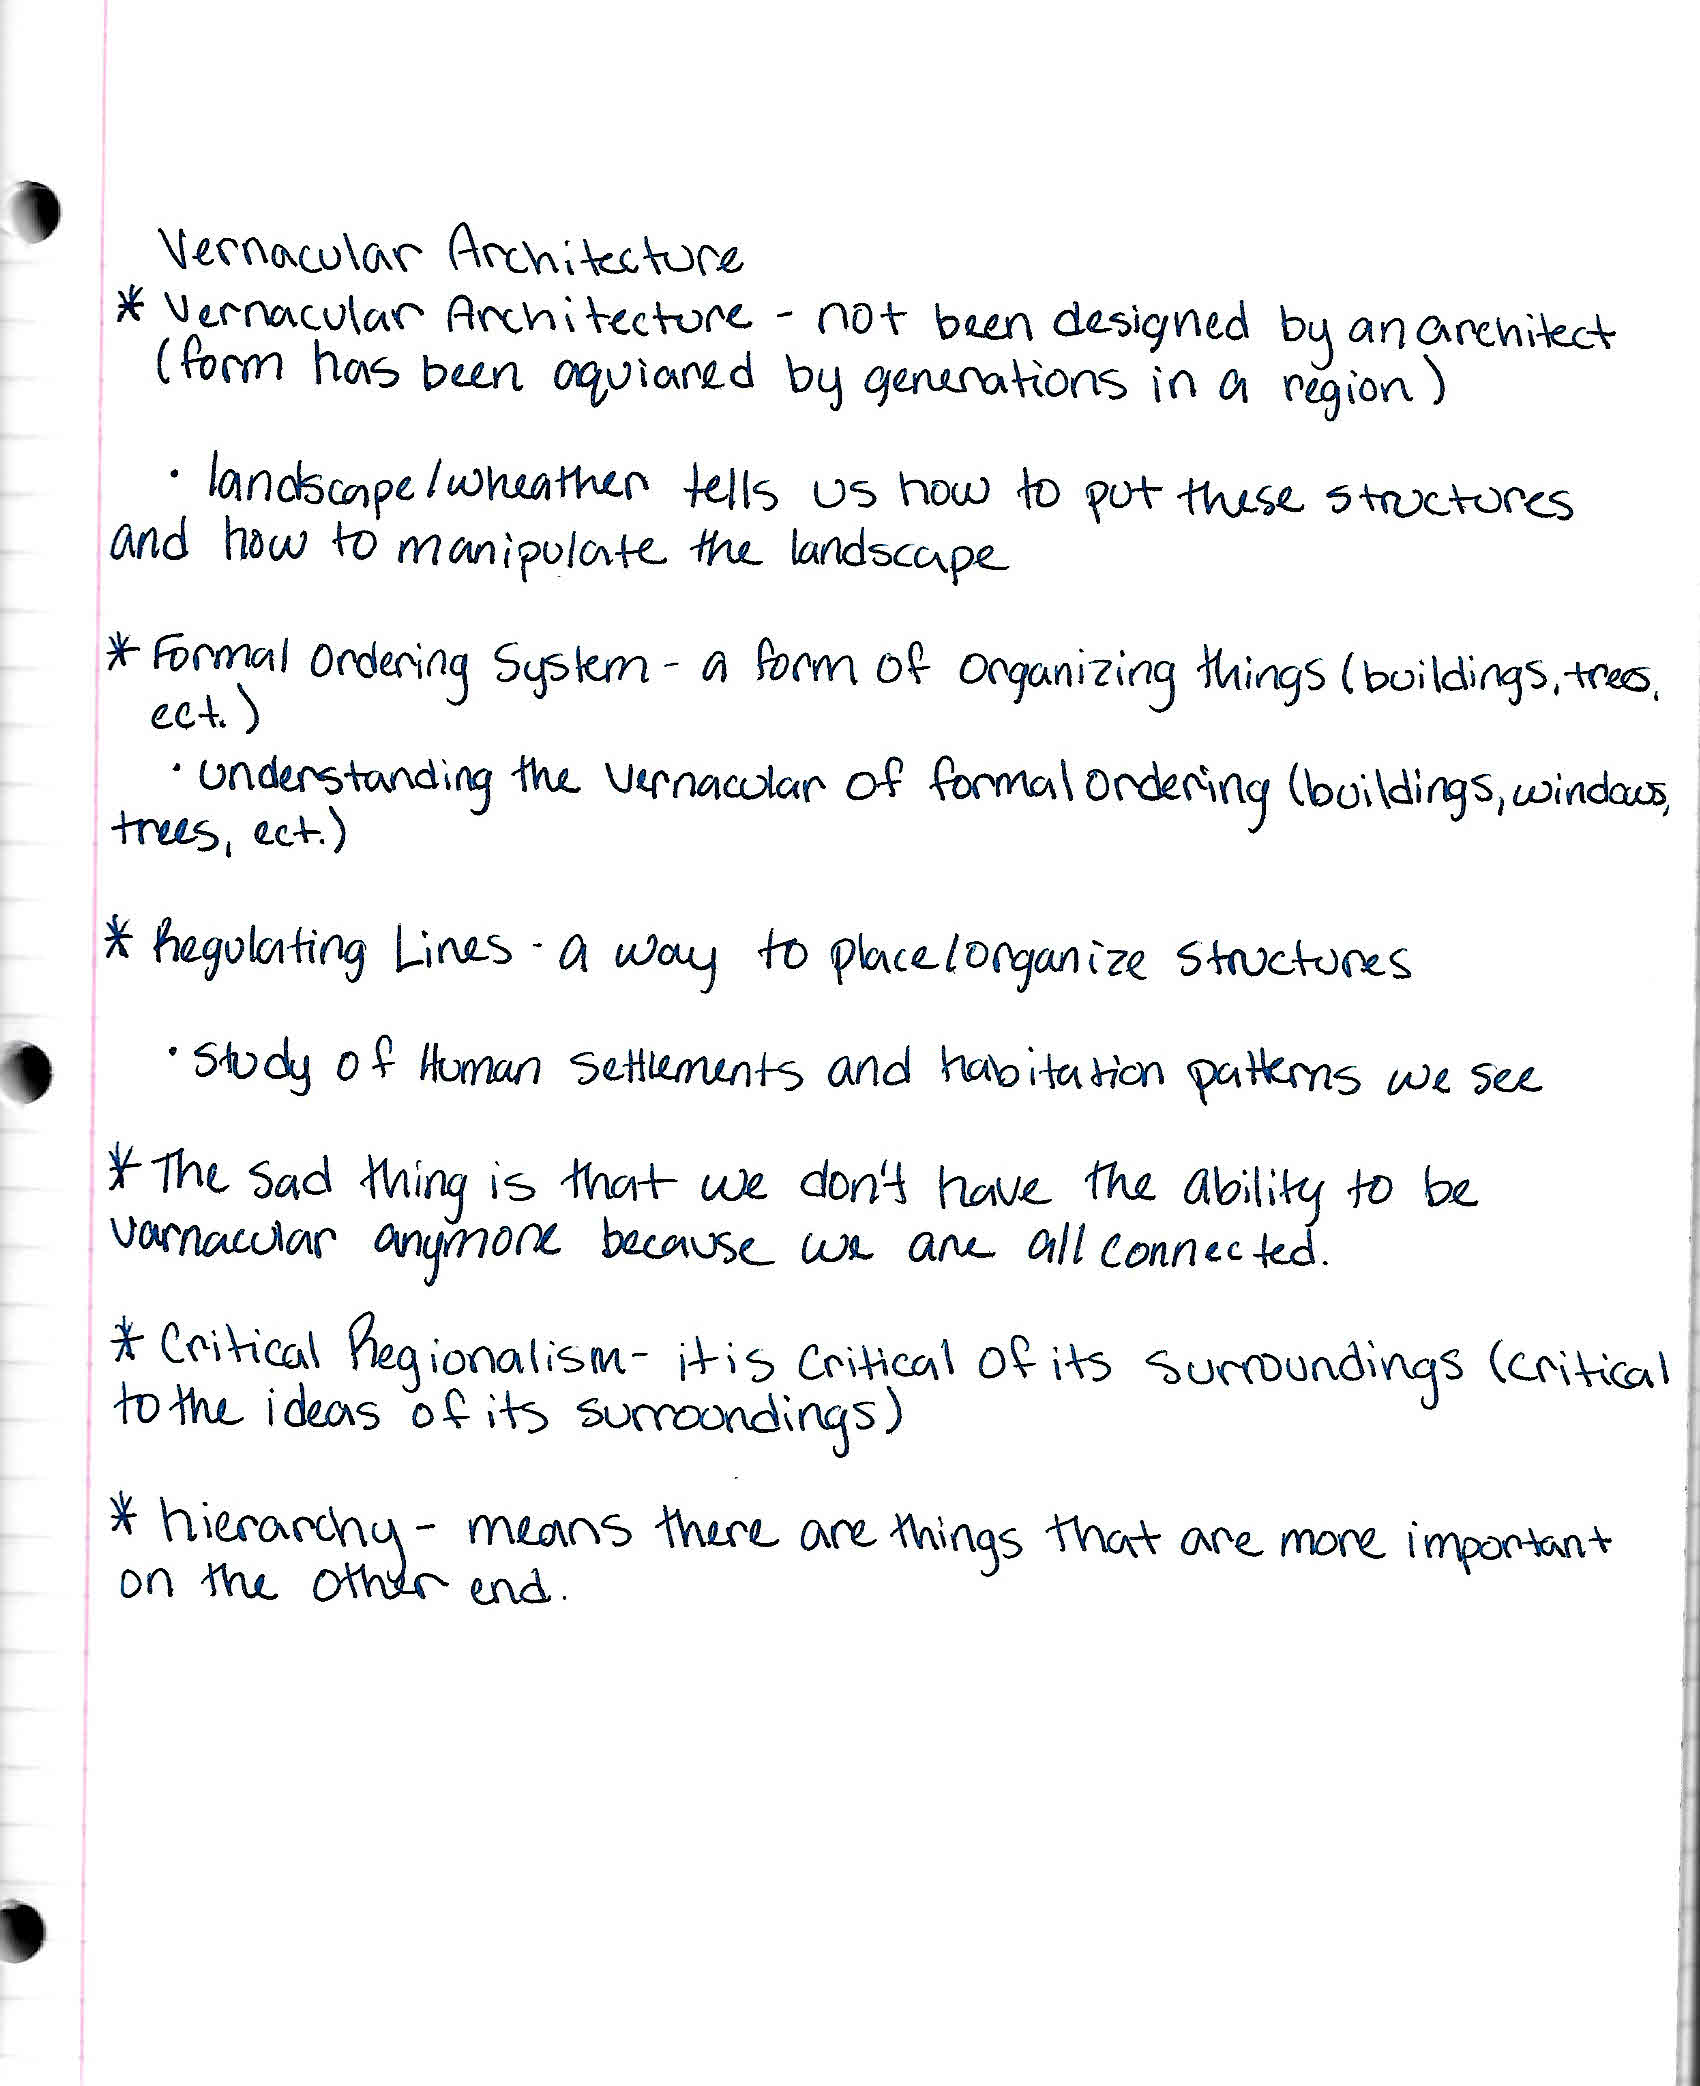 Vernacular Architecture
* Vernacular Architecture - not been designed by an architect
(form has been aquiared by generations in a region)
· landscape/wheather tells us how to put these structures
and how to manipulate the landscape
* Formal Ordering System - a form of organizing things (buildings, trees,
ect.)
· understanding the vernacular of formal ordering (buildings, windows,
trees, ect.)
* Regulating Lines - a way to place/organize structures
· Study of Human settlements and habitation patterns we see
* The sad thing is that we don't have the ability to be
varnacular anymore because we are all connected.
* Critical Regionalism - it is critical of its surroundings (critical
to the ideas of its surroundings)
* hierarchy - means there are things that are more important
on the other end.